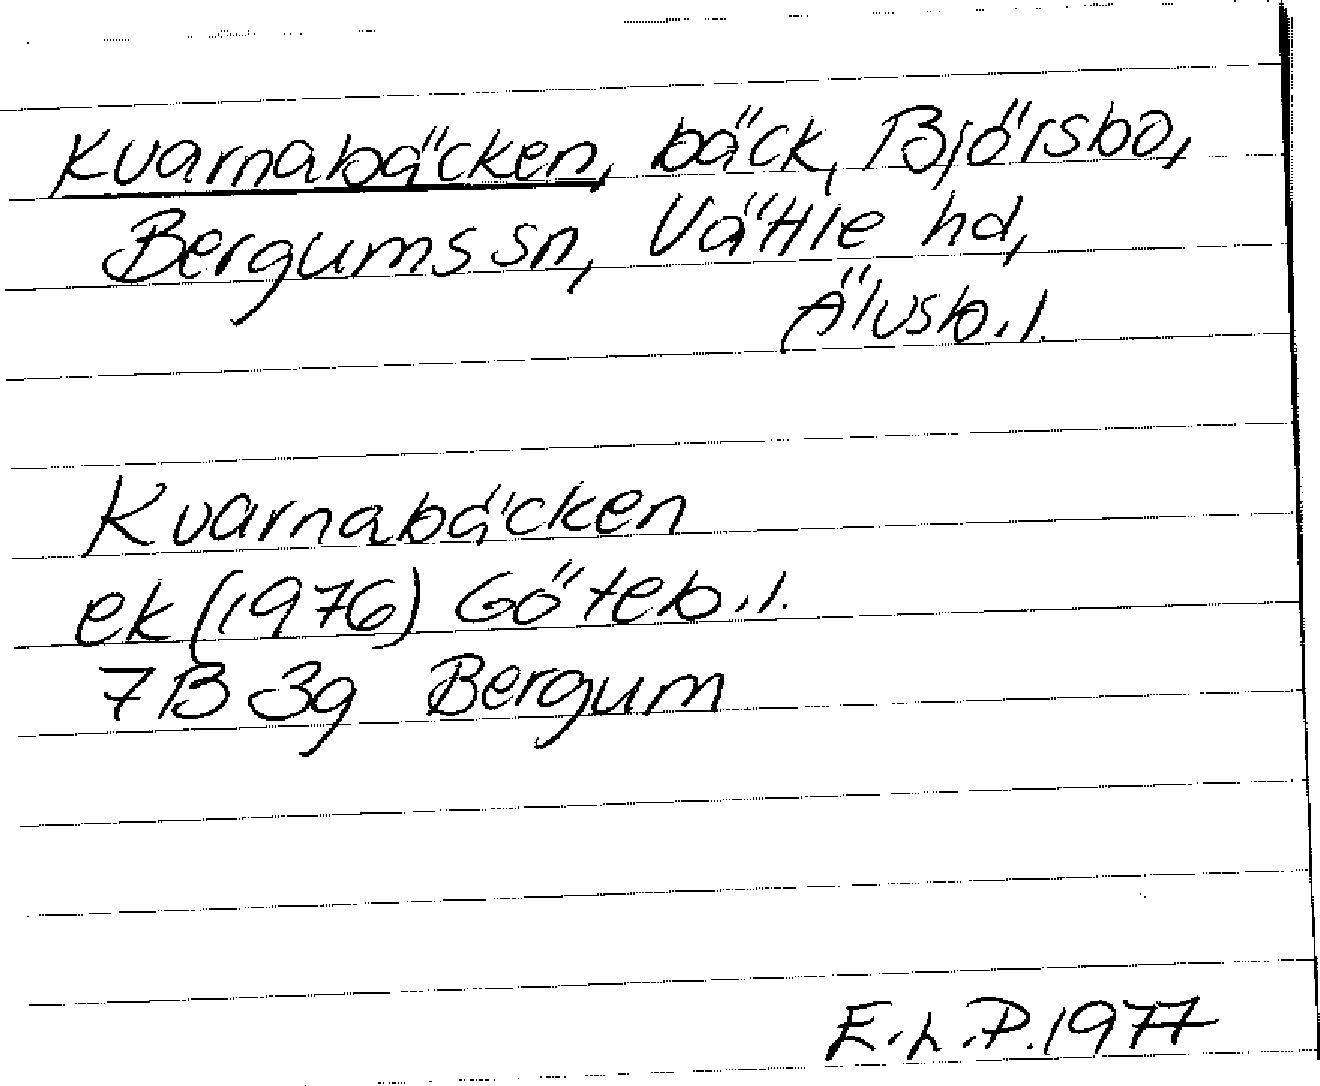 Kvarnabäcken, bäck, Björsbo,
Bergums sn, Vättle hd,
Älvsb. l.
Kvarnabäcken
ek (1976) Göteb. l.
7B 3g Bergum
E.L.P. 1977